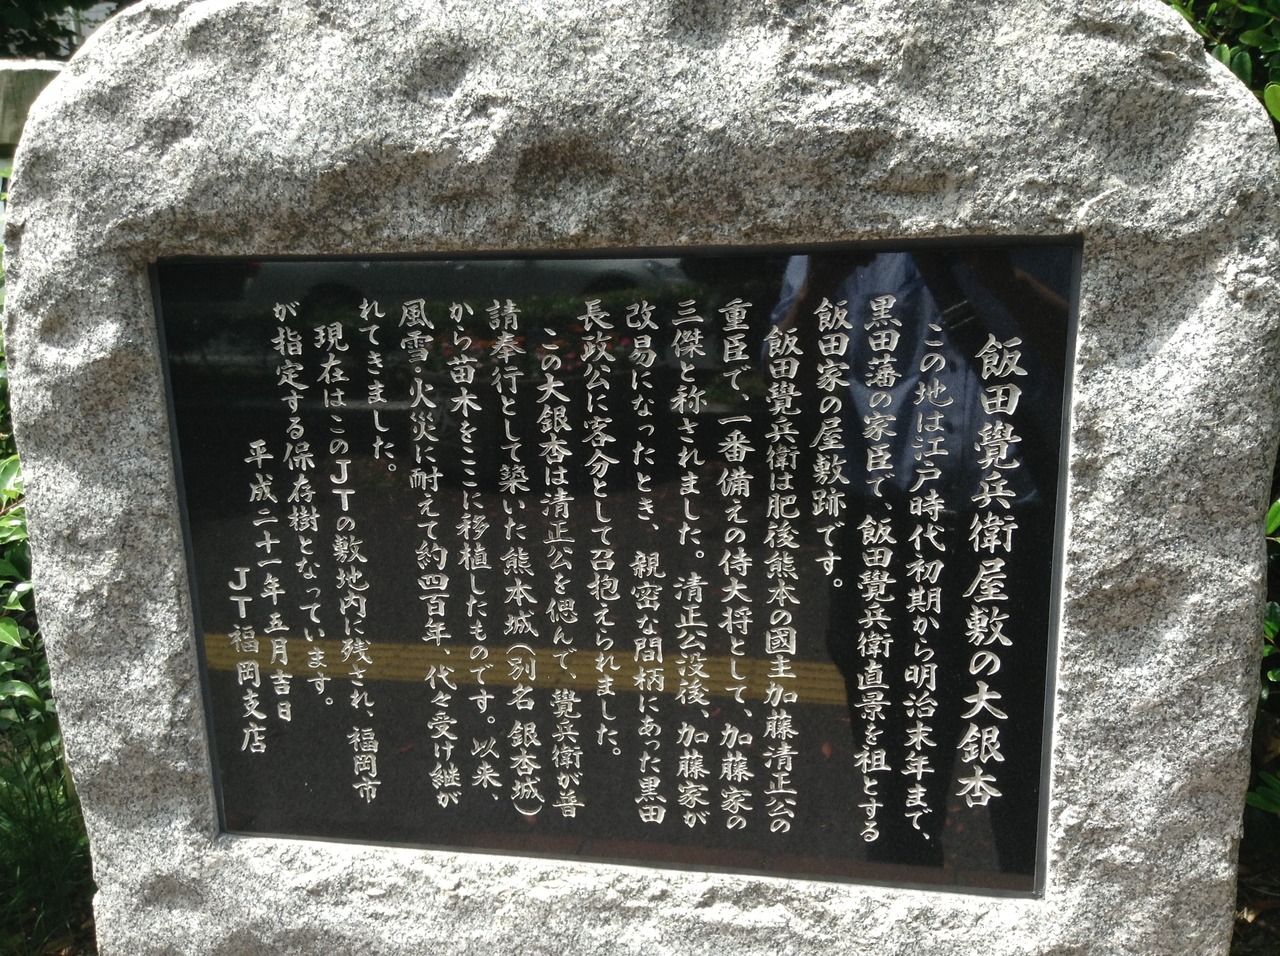 飯田覺兵衛屋敷の大銀杏
この地は江戸時代初期から明治末年まで、
黒田藩の家臣で、飯田覺兵衛直景を祖とする
飯田家の屋敷跡です。
飯田覺兵衛は肥後熊本の國主加藤清正公の
重臣で、一番備えの侍大将として、加藤家の
三傑と称されました。清正公没後、加藤家が
改易になったとき、親密な間柄にあった黒田
長政公に客分として召抱えられました。
この大銀杏は清正公を偲んで、覺兵衛が普
請奉行として築いた熊本城(別名 銀杏城)
から苗木をここに移植したものです。以来、
風雪・火災に耐えて約四百年、代々受け継が
れてきました。
現在はこのJTの敷地内に残され、福岡市
が指定する保存樹となっています。
平成二十一年五月吉日
JT福岡支店